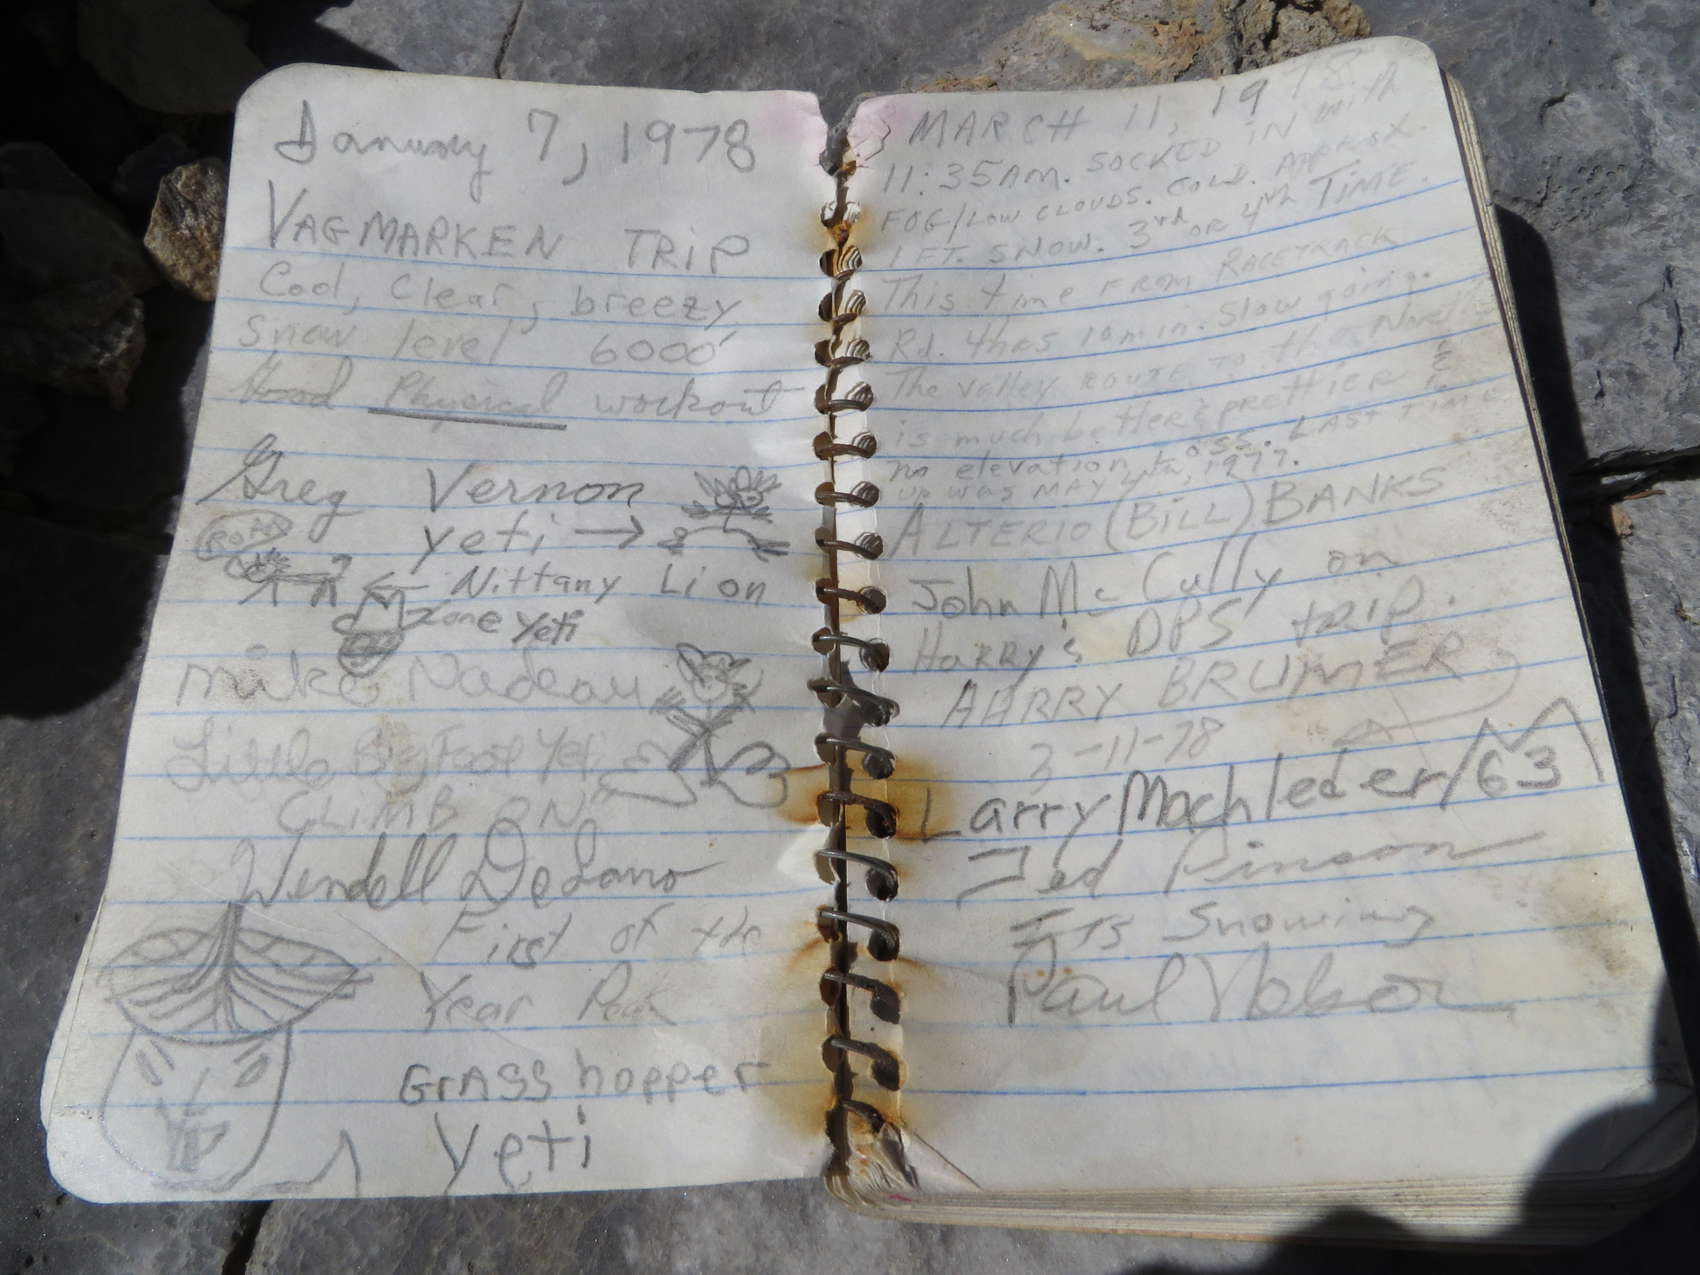 January 7, 1978
VAGMARKEN TRIP
Cool, clear, breezy
Snow level 6000'
Good Physical workout
Greg Vernon
yeti →
← Nittany Lion
Zone Yeti
Mike Nadeau
Little Big Foot Yeti
CLIMB ON
Wendell DeLano
First of the
Year Peak
GrASS hopper
Yeti
MARCH 11, 1978
11:35AM. SOCKED IN with
FOG/LOW CLOUDS. COLD. APPROX.
1 FT. SNOW. 3rd OR 4th TIME.
This time FROM RACETRACK
Rd. 4hrs 10min. Slow going.
The valley ROUTE TO the North
is much better & prettier &
no elevation loss. LAST TIME
up was MAY 1977.
ALTERIO (BILL) BANKS
John Mc Cully on
Harry's DPS trip.
HARRY BRUMER
3-11-78
Larry Machleder/63
Ted Pinson
ITS Snowing
Paul